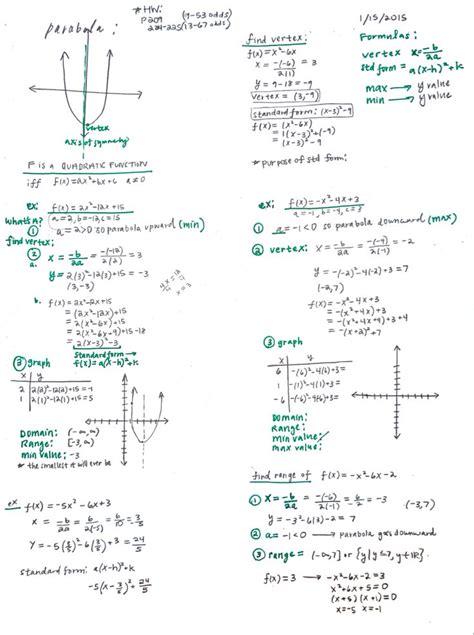 *HW:
P209 (9-53 odds)
224-225 (13-67 odds)
parabola:
vertex
axis of symmetry
F is a QUADRATIC FUNCTION
iff f(x)=ax²+bx+c a≠0
ex: f(x)=2x²-12x+15
what's a? a=2, b=-12, c=15
① a=2>0 so parabola upward (min)
find vertex:
②
a. x = -b/2a = -(-12)/2(2) = 3
y = 2(3)²-12(3)+15 = -3
(3,-3)
b. f(x)=2x²-12x+15
= (2x²-12x)+15
= 2(x²-6x)+15
= 2(x²-6x+9)+15-18
= 2(x-3)²-3
standard form →
f(x)=a(x-h)²+k
③ graph
x y
2 2(2)²-12(2)+15=-1
1 2(1)²-12(1)+15=5
Domain: (-∞,∞)
Range: [-3,∞)
min value: -3
* the smallest it will ever be
ex f(x)=-5x²-6x+3
standard form: a(x-h)²+k
find vertex:
f(x)=x²-6x
x = -(-6)/2(1) = 3
y = 9-18 = -9
vertex = (3,-9)
standard form: (x-3)²-9
f(x)=(x²-6x)
= 1(x-3)²+(-9)
= (x-3)²-9
* purpose of std form:
1/15/2015
Formulas:
vertex x=-b/2a
std form = a(x-h)²+k
max → y value
min → y value
ex: f(x)=-x²-4x+3
a=-1, b=-4, c=3
① a=-1<0 so parabola downward (max)
② vertex: x = -b/2a = -(-4)/2(-1) = -2
y = -(-2)²-4(-2)+3 = 7
(-2,7)
f(x)=-x²-4x+3
= -(x²+4x)+3
= -(x²+4x+4)+3+4
= -(x+2)²+7
③ graph
x y
Domain:
Range:
min value:
max value:
find range of f(x)=-x²-6x-2
① x = -b/2a = -(-6)/2(-1) = 6/-2 = -3 (-3,7)
② a=-1<0 → parabola goes downward
③ range = (-∞,7] or {y|y≤7, y∈ℝ}
f(x)=3 → -x²-6x-2=3
x²+6x+5=0
(x+5)(x+1)=0
x=-5 x=-1